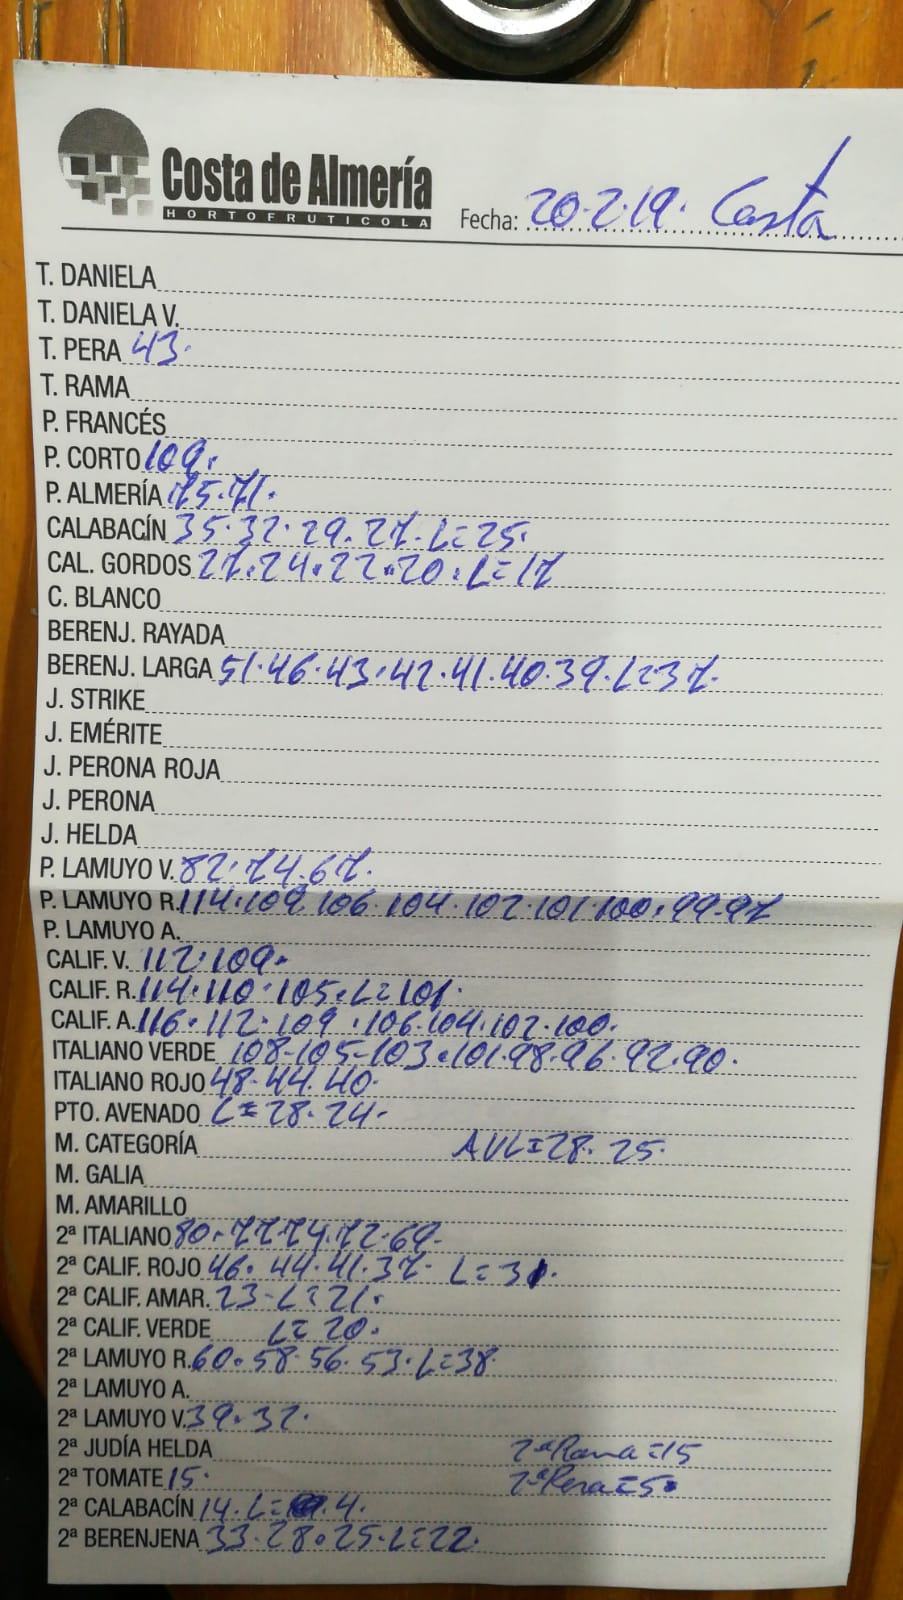 Costa de Almería
HORTOFRUTICOLA
Fecha: 20·2·19· Costa
T. DANIELA
T. DANIELA V.
T. PERA 43·
T. RAMA
P. FRANCÉS
P. CORTO 109·
P. ALMERÍA 75·71·
CALABACÍN 35·32·29·27·L=25·
CAL. GORDOS 27·24·22·20·L=17
C. BLANCO
BERENJ. RAYADA
BERENJ. LARGA 51·46·43·42·41·40·39·L=37·
J. STRIKE
J. EMÉRITE
J. PERONA ROJA
J. PERONA
J. HELDA
P. LAMUYO V. 82·74·67·
P. LAMUYO R. 114·109·106·104·102·101·100·99·97
P. LAMUYO A.
CALIF. V. 112·109·
CALIF. R. 114·110·105·L=101·
CALIF. A. 116·112·109·106·104·102·100·
ITALIANO VERDE 108-105-103·101·98·96·92·90·
ITALIANO ROJO 48·44·40·
PTO. AVENADO L=28·24·
M. CATEGORÍA AVL=28·25·
M. GALIA
M. AMARILLO
2ª ITALIANO 80·77·74·72·69·
2ª CALIF. ROJO 46·44·41·37· L=31·
2ª CALIF. AMAR. 23·L=21·
2ª CALIF. VERDE L=20·
2ª LAMUYO R. 60·58·56·53·L=38·
2ª LAMUYO A.
2ª LAMUYO V. 39·32·
2ª JUDÍA HELDA 2ª Rama=15
2ª TOMATE 15· 2ª Pera=5·
2ª CALABACÍN 14·L= 4·
2ª BERENJENA 33·28·25·L=22·